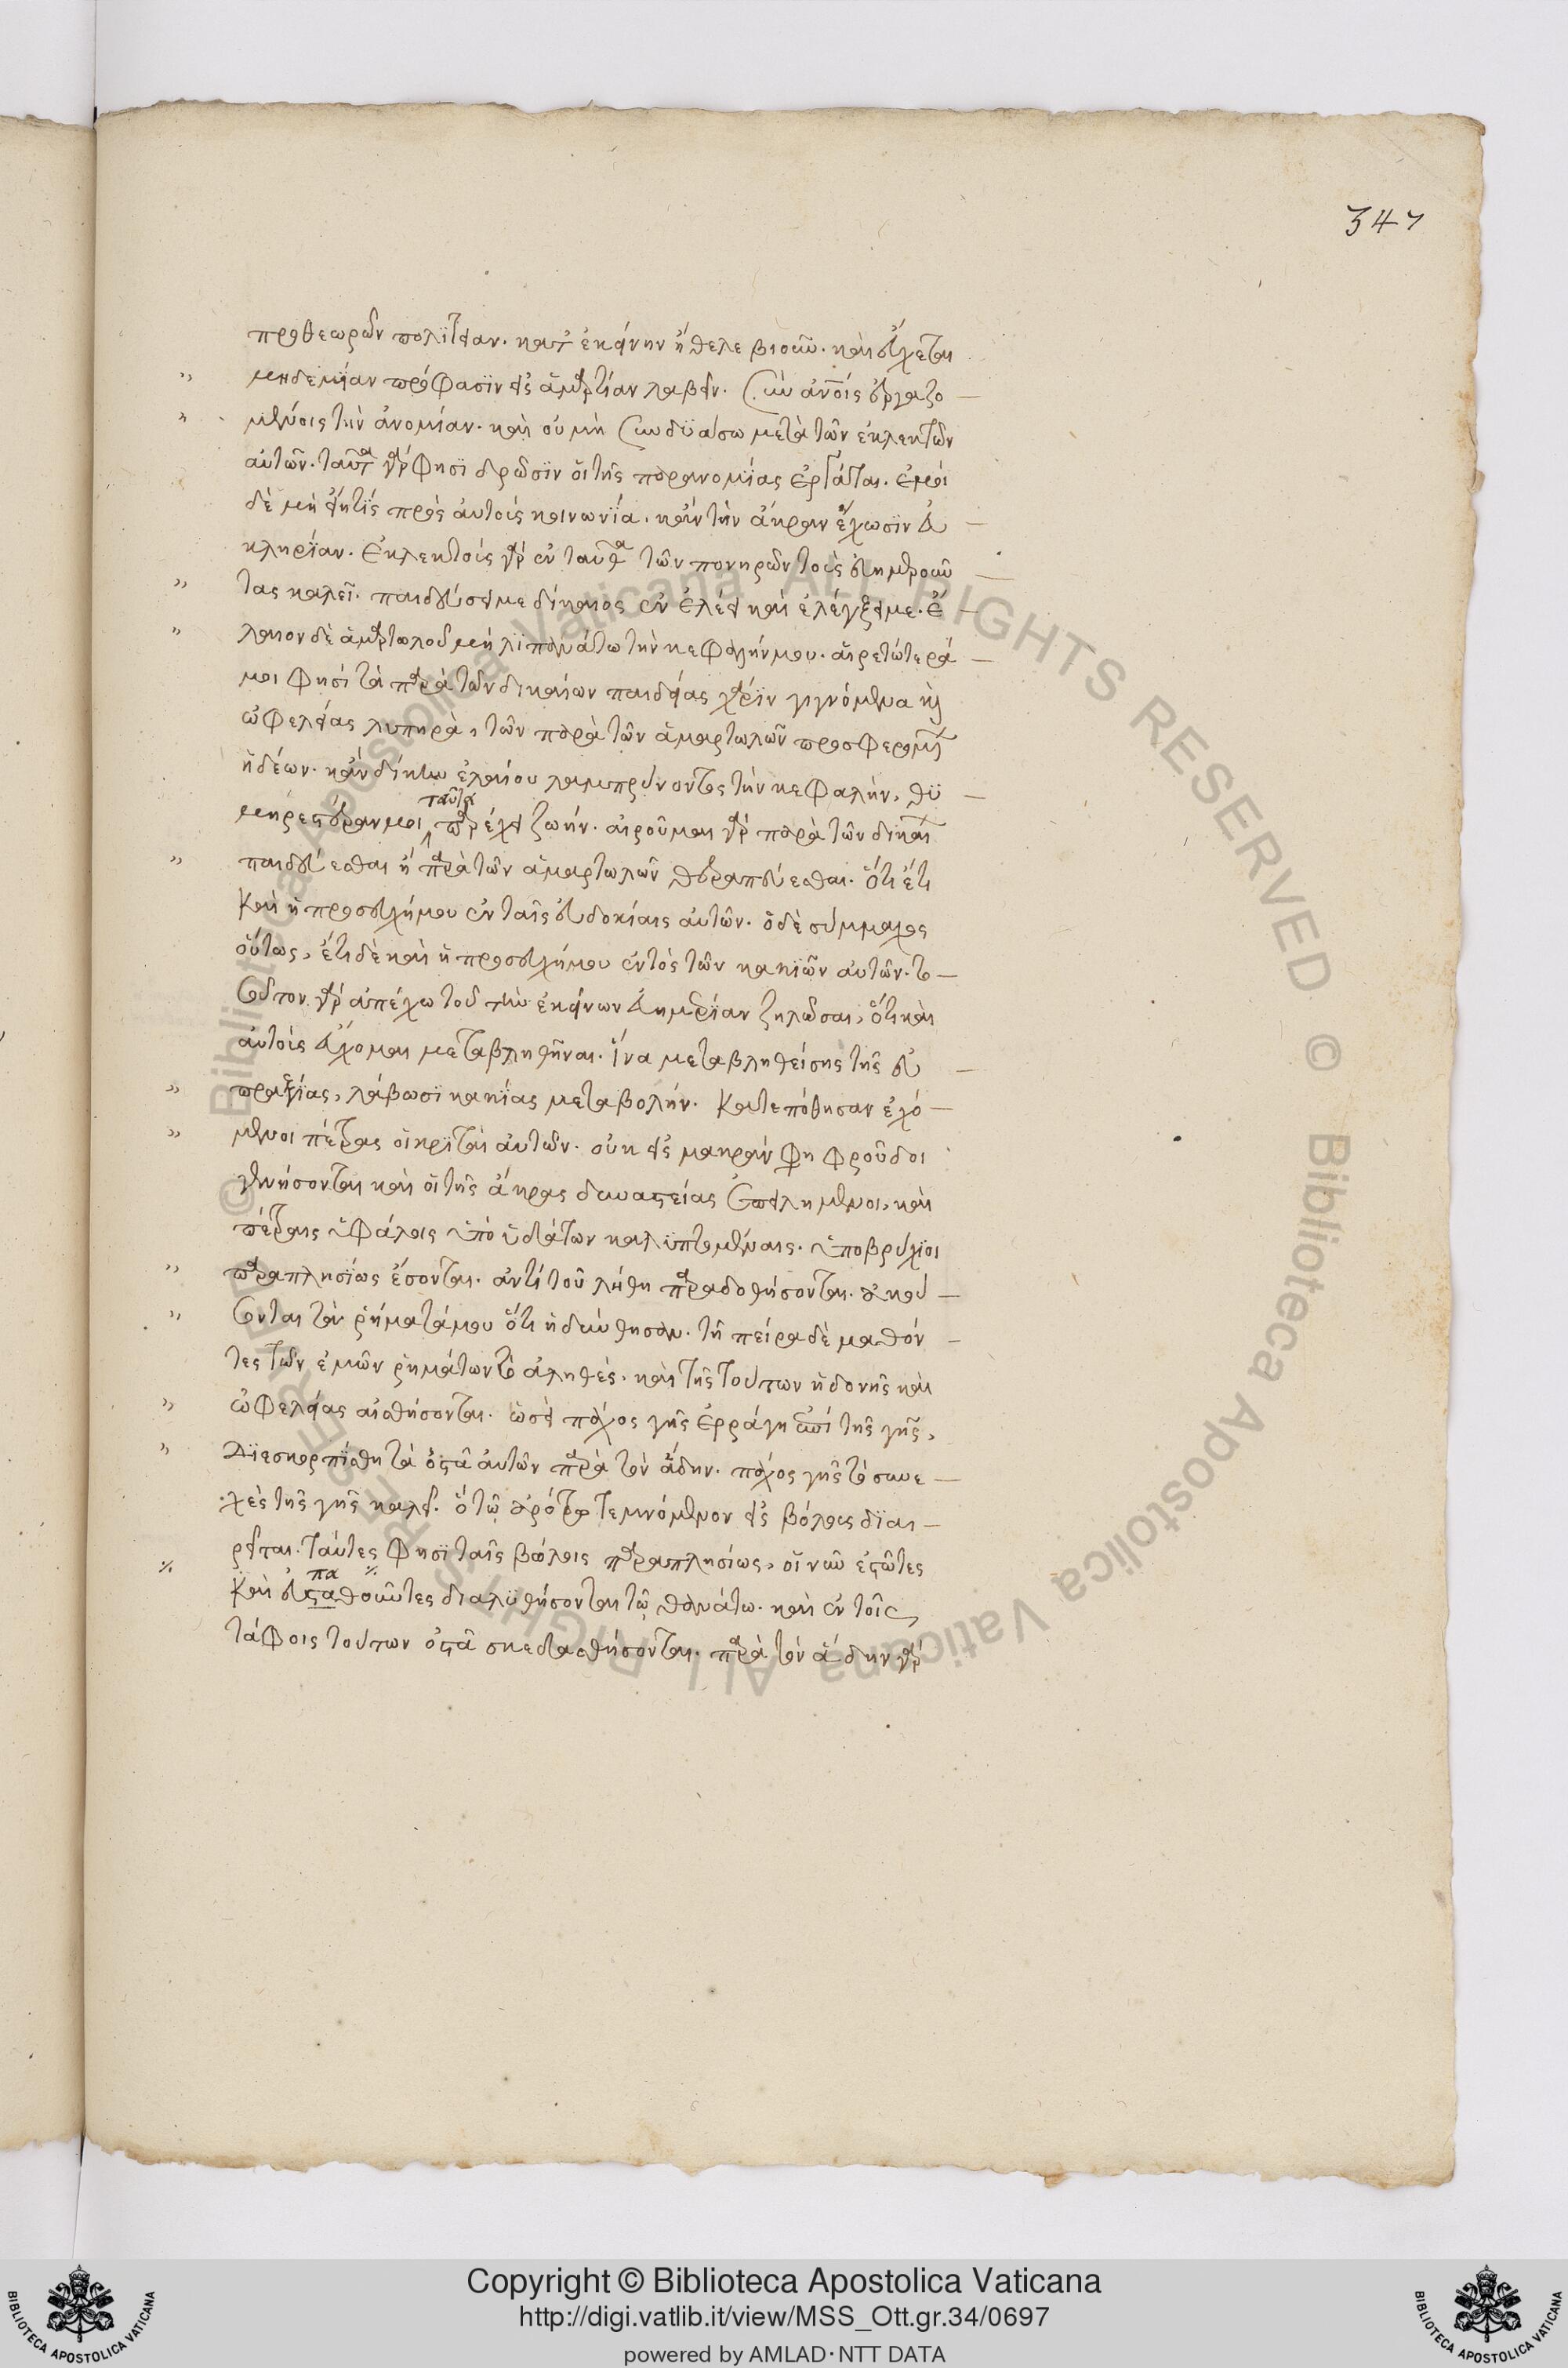 347
προθεωρῶν πολιτείαν. κατ' ἐκείνην ἤθελε βιοῦν. καὶ εὔχεται
μηδεμίαν πρόφασιν εἰς ἁμαρτίαν λαβεῖν. σὺν ἀνοις ἐργαζο
μένοις τὴν ἀνομίαν. καὶ οὐ μὴ συνδυάσω μετὰ τῶν ἐκλεκτῶν
αὐτῶν. ταῦτα γάρ φησι δρῶσιν οἱ τῆς παρανομίας ἐργάται. ἐμοὶ
δὲ μὴ εἴη τίς πρὸς αὐτοὺς κοινωνία. κἂν τὴν ἄκραν ἔχωσιν εὐ
κληρίαν. ἐκλεκτοὺς γὰρ ἐνταῦθα τῶν πονηρῶν τοὺς εὐημεροῦν
τας καλεῖ. παιδεύσει με δίκαιος ἐν ἐλέει καὶ ἐλέγξει με. ἔ
λαιον δὲ ἁμαρτωλοῦ μὴ λιπανάτω τὴν κεφαλήν μου. αἱρετώτερά
μοι φησὶ τὰ παρὰ τῶν δικαίων παιδείας χάριν γιγνόμενα καὶ
ὠφελείας λυπηρὰ, τῶν παρὰ τῶν ἁμαρτωλῶν προσφερομένων
ἡδέων. κἂν δίκην ἐλαίου λαμπρύνοντες τὴν κεφαλὴν, θυ
μηρεστέραν μοι ταῦτα παρέχει ζωήν. αἱροῦμαι γὰρ παρὰ τῶν δικαίων
παιδεύεσθαι ἢ παρὰ τῶν ἁμαρτωλῶν θεραπεύεσθαι. ὅτι ἔτι
καὶ ἡ προσευχή μου ἐν ταῖς εὐδοκίαις αὐτῶν. ὁ δὲ σύμμαχος
οὕτως, ἔτι δὲ καὶ ἡ προσευχή μου ἐντὸς τῶν κακιῶν αὐτῶν. το
σοῦτον γὰρ ἀπέχω τοῦ τὴν ἐκείνων εὐημερίαν ζηλῶσαι, ὅτι καὶ
αὐτοὺς εὔχομαι μεταβληθῆναι. ἵνα μεταβληθείσης τῆς εὐ
πραξίας, λάβωσι κακίας μεταβολήν. κατεπόθησαν ἐχό
μενοι πέτρας οἱ κριταὶ αὐτῶν. οὐκ εἰς μακράν φη φροῦδοι
γενήσονται καὶ οἱ τῆς ἄκρας δυναστείας ἐπειλημμένοι, καὶ
πέτραις ὑφάλοις ὑπὸ ὑδάτων καλυπτομέναις. ὑποβρύχιοι
παραπλησίως ἔσονται. ἀντὶ τοῦ λήθη παραδοθήσονται. ἀκού
σονται τὰ ῥήματά μου ὅτι ἡδύνθησαν. τῇ πείρᾳ δὲ μαθόν
τες τῶν ἐμῶν ῥημάτων τὸ ἀληθὲς. καὶ τῆς τούτων ἡδονῆς καὶ
ὠφελείας αἰσθήσονται. ὡσεὶ πάχος γῆς ἐρράγη ἐπὶ τῆς γῆς,
διεσκορπίσθη τὰ ὀστᾶ αὐτῶν παρὰ τὸν ἅδην. πάχος γῆς τὸ συνε
χὲς τῆς γῆς καλεῖ. ὃ τῷ ἀρότρῳ τεμνόμενον εἰς βόλους διαι
ρεῖται. ταύταις φησὶ ταῖς βώλοις παραπλησίως, οἱ νῦν ἑστῶτες
καὶ εὐσταθοῦντες διαλυθήσονται τῷ θανάτῳ. καὶ ἐν τοῖς
πα
τάφοις τούτων ὀστᾶ σκεδασθήσονται. παρὰ τὸν ἅδην γὰρ
© Biblioteca Apostolica Vaticana ALL RIGHTS RESERVED © Biblioteca Apostolica Vaticana ALL RIGHTS RESERVED
Copyright © Biblioteca Apostolica Vaticana
http://digi.vatlib.it/view/MSS_Ott.gr.34/0697
powered by AMLAD·NTT DATA
BIBLIOTECA APOSTOLICA VATICANA
BIBLIOTECA APOSTOLICA VATICANA